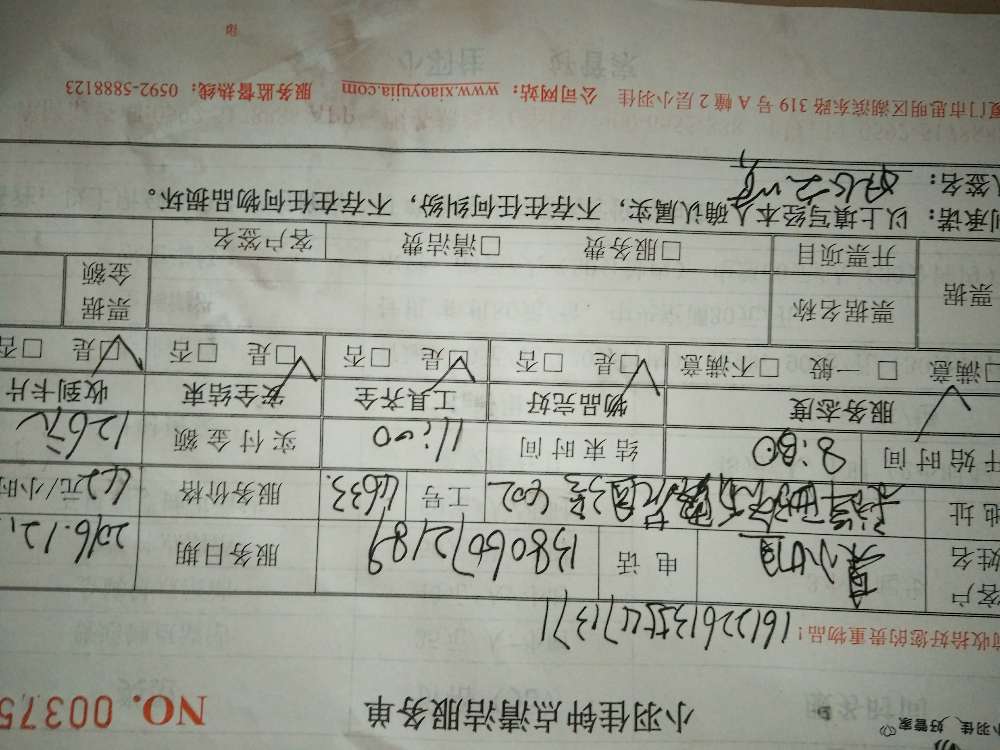 小羽佳 好管家
小羽佳钟点清洁服务单 NO. 00375
收拾好您的贵重物品!
客户姓名 电话 13806072189 服务日期 2016.12.
地址 602 工号 4633. 服务价格 42元/小时
开始时间 8:00 结束时间 11:00 实付金额 126元
服务态度 物品完好 工具齐全 安全结束 收到卡片
□满意 □一般 □不满意 □是 □否 □是 □否 □是 □否 □是 □否
票据 票据名称 票据金额
开票项目 □服务费 □清洁费 客户签名
承诺:以上填写经本人确认属实,不存在任何纠纷,不存在任何物品损坏。
签名:
厦门市思明区湖滨东路 319 号 A 幢 2 层小羽佳 公司网站:www.xiaoyujia.com 服务监督热线:0592-5888123